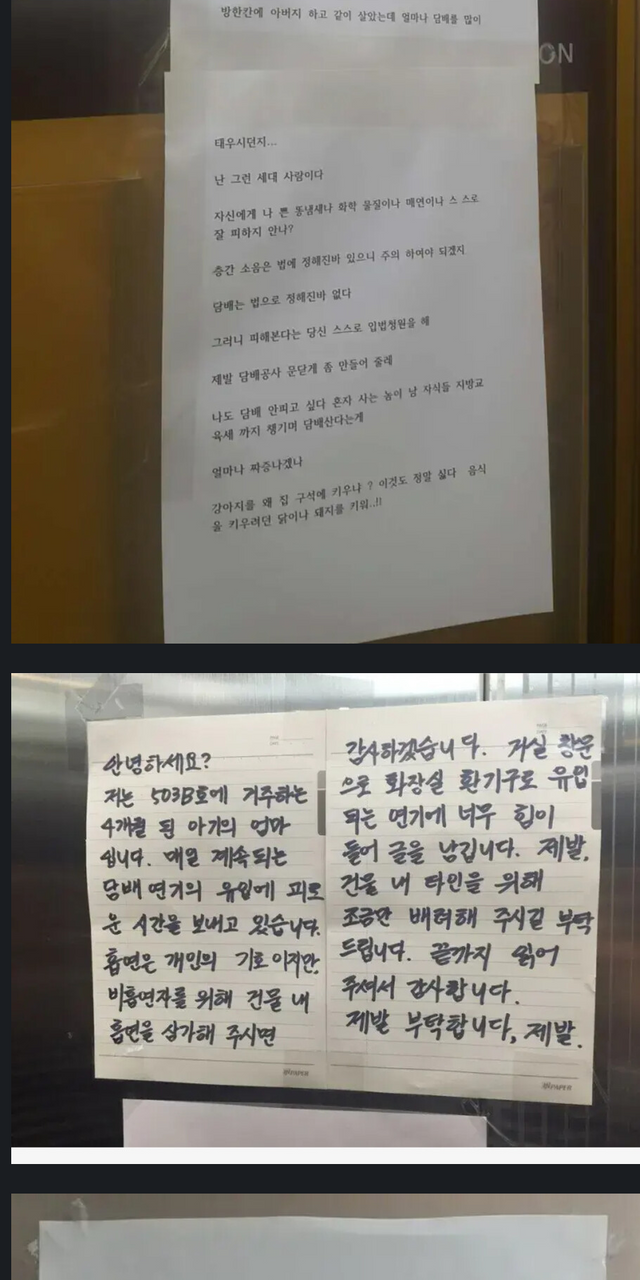 방한칸에 아버지 하고 같이 살았는데 얼마나 담배를 많이
ON
태우시던지...
난 그런 세대 사람이다
자신에게 나 쁜 똥냄새나 화학 물질이나 매연이나 스 스로
잘 피하지 안나?
층간 소음은 법에 정해진바 있으니 주의 하여야 되겠지
담배는 법으로 정해진바 없다
그러니 피해본다는 당신 스스로 입법청원을 해
제발 담배공사 문닫게 좀 만들어 줄래
나도 담배 안피고 싶다 혼자 사는 놈이 남 자식들 지방교
육세 까지 챙기며 담배산다는게
얼마나 짜증나겠나
강아지를 왜 집 구석에 키우냐 ? 이것도 정말 싫다 음식
울 키우려던 닭이나 돼지를 키워..!!
안녕하세요?
저는 503B호에 거주하는
4개월 된 아기의 엄마
입니다. 매일 계속되는
담배 연기의 유입에 괴로
운 시간을 보내고 있습니다.
흡연은 개인의 기호이지만,
비흡연자를 위해 건물 내
흡연을 삼가해 주시면
감사하겠습니다. 거실 창문
으로 화장실 환기구로 유입
되는 연기에 너무 힘이
들어 글을 남깁니다. 제발,
건물 내 타인을 위해
조금만 배려해 주시길 부탁
드립니다. 끝까지 읽어
주셔서 감사합니다.
제발 부탁합니다, 제발.